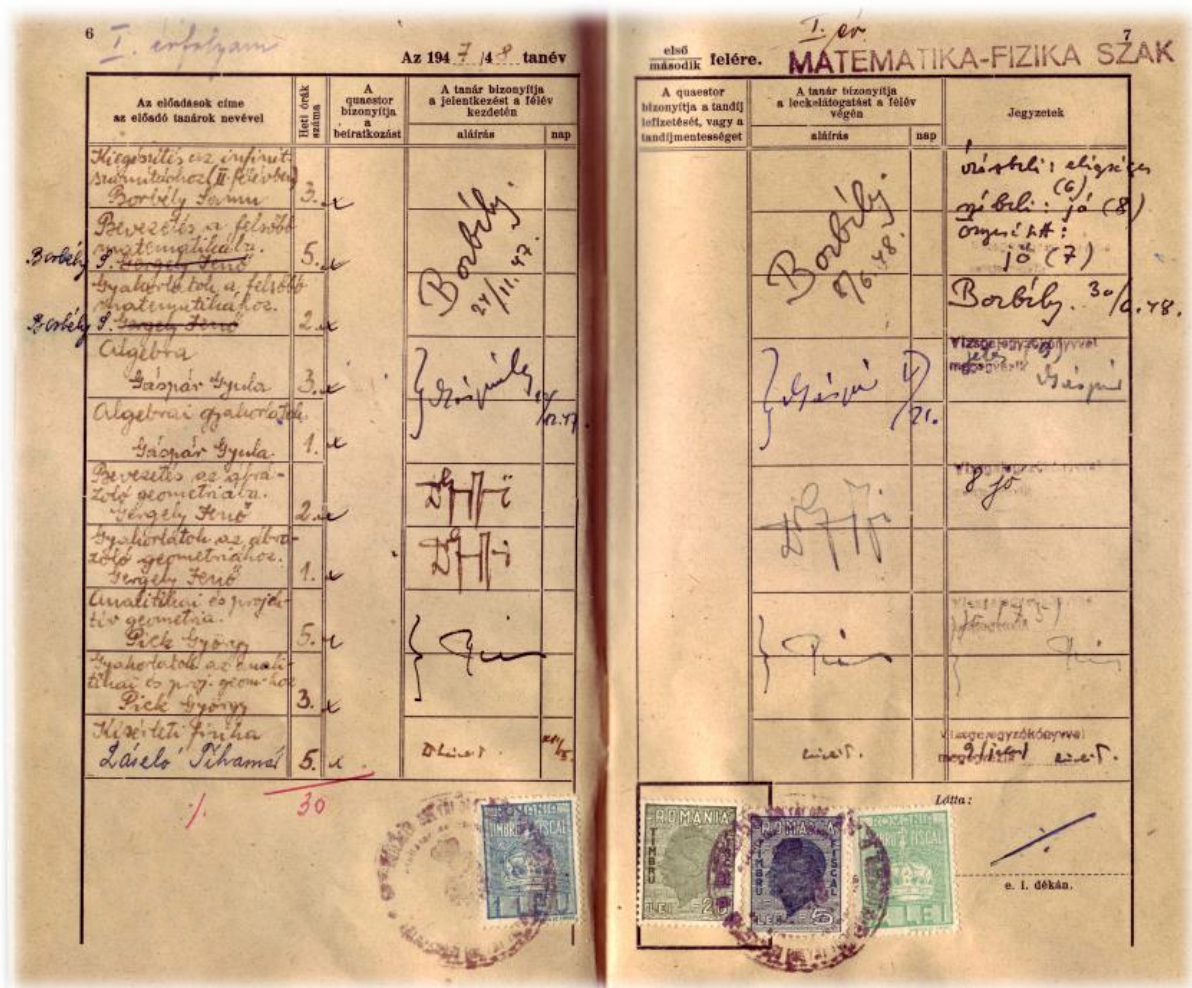 6
I. évfolyam
Az 1947/48 tanév
Az előadások címe
az előadó tanárok nevével
Heti órák
száma
A
quaestor
bizonyítja
a
beiratkozást
A tanár bizonyítja
a jelentkezést a félév
kezdetén
aláírás
nap
Kiegészítés az infinit.
számításhoz (II. félévben)
Borbély Samu 3. x
Bevezetés a felsőbb
matematikába.
Borbély S. Gergely Jenő 5. x
Gyakorlatok a felsőbb
matematikához.
Borbély S. Gergely Jenő 2. x
Borbély
24/11.47.
Algebra
Gáspár Gyula 3. x
Algebrai gyakorlatok
Gáspár Gyula 1. x
Bevezetés az ábrá-
zoló geometriába.
Gergely Jenő 2. x
Gyakorlatok az ábrá-
zoló geometriához.
Gergely Jenő 1. x
Analitikai és projek-
tív geometria.
Pick György 5. x
Gyakorlatok az anali-
tikai és proj. geom.-hoz
Pick György 3. x
Kísérleti fizika
László Tihamér 5. x
30
ROMANIA
TIMBRU FISCAL
1 LEU
7
I. év.
első
második felére.
MATEMATIKA-FIZIKA SZAK
A quaestor
bizonyítja a tandíj
lefizetését, vagy a
tandíjmentességet
A tanár bizonyítja
a leckelátogatást a félév
végén
aláírás
nap
Jegyzetek
írásbeli: elégséges
(6)
szóbeli: jó (8)
összesített:
jó (7)
Borbély
8/6.48.
Borbély. 30/6.48.
Vizsgajegyzőkönyvvel
megegyezik
Gáspár
21.
8 jó
Vizsgajegyzőkönyvvel
megegyezik
9/jeles
Látta:
e. i. dékán.
ROMANIA
TIMBRU
LEI 20
ROMANIA
TIMBRU
FISCAL
LEI 5
ROMANIA
LEI